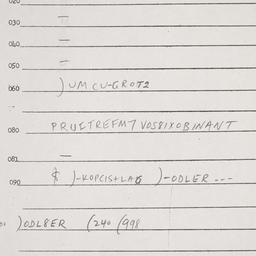 020
030 —
040 —
050 —
060 )UMCU-GROT2
080 PRUITREFM7V058IXOBINANT
081 —
090 $ )-KOPCIS+LAG )-ODLER ---
)ODL8ER (240 (998